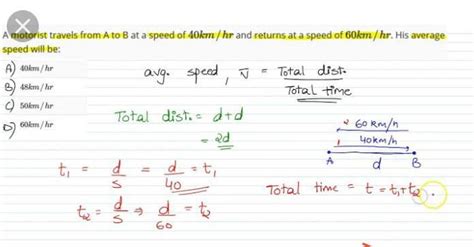 A motorist travels from A to B at a speed of 40km/hr and returns at a speed of 60km/hr. His average
speed will be:
A) 40km/hr
B) 48km/hr
C) 50km/hr
D) 60km/hr
avg. speed, v̅ = Total dist. / Total time
Total dist. = d+d
= 2d
2 60 km/h
1 40km/h
A d B
t₁ = d/s = d/40 = t₁
t₂ = d/s ⇒ d/60 = t₂
Total time = t = t₁+t₂.